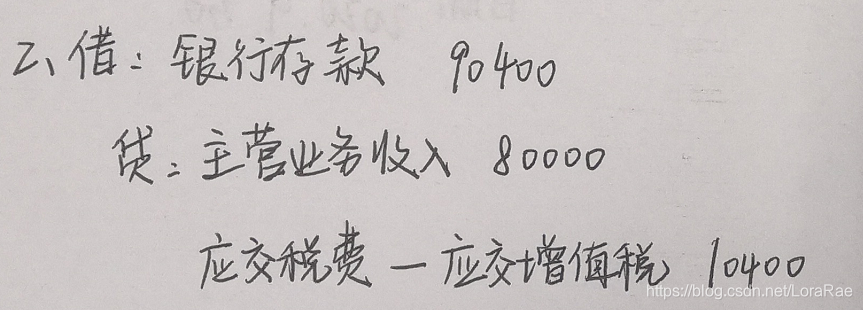 2、借：银行存款 90400
贷：主营业务收入 80000
应交税费—应交增值税 10400
https://blog.csdn.net/LoraRae